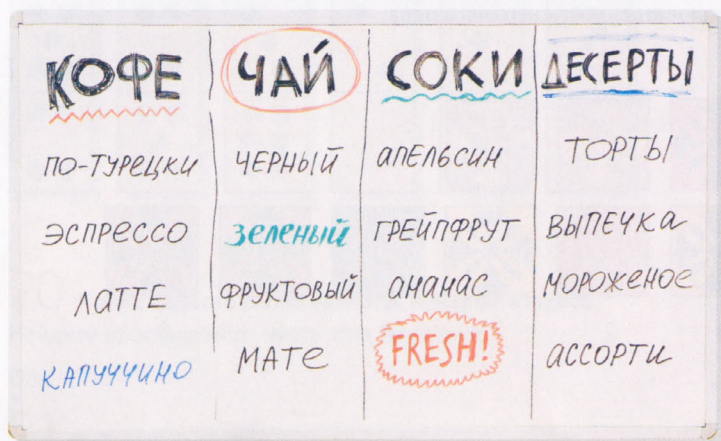 КОФЕ
ПО-ТУРЕЦКИ
ЭСПРЕССО
ЛАТТЕ
КАПУЧЧИНО
ЧАЙ
ЧЕРНЫЙ
ЗЕЛЕНЫЙ
ФРУКТОВЫЙ
МАТЕ
СОКИ
АПЕЛЬСИН
ГРЕЙПФРУТ
АНАНАС
FRESH!
ДЕСЕРТЫ
ТОРТЫ
ВЫПЕЧКА
МОРОЖЕНОЕ
АССОРТИ